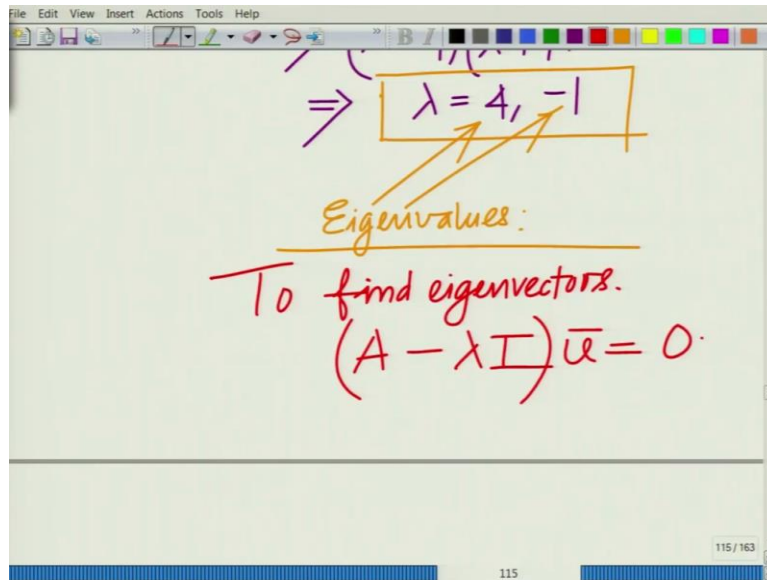 File Edit View Insert Actions Tools Help
B I
⇒ λ = 4, -1
Eigenvalues:
To find eigenvectors.
(A - λI)ū = 0.
115/163
115